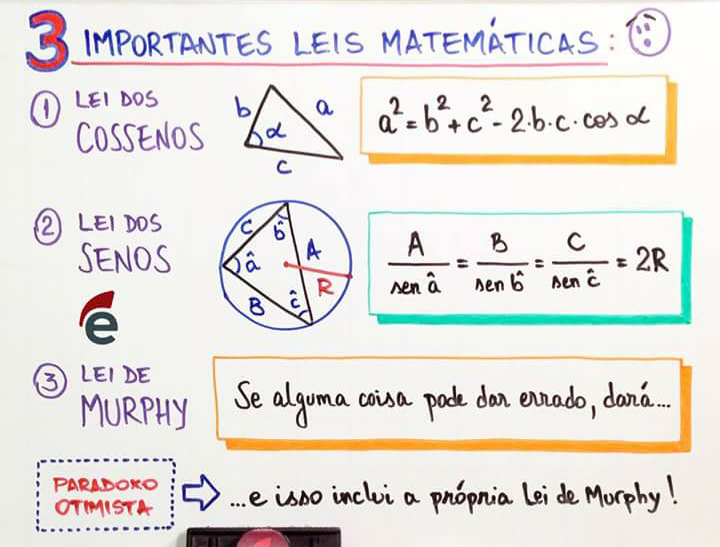 3 IMPORTANTES LEIS MATEMÁTICAS:
1 LEI DOS
COSSENOS
b a
α
c
a² = b² + c² - 2·b·c·cos α
2 LEI DOS
SENOS
C b̂ A
â R
B ĉ
A/sen â = B/sen b̂ = C/sen ĉ = 2R
e
3 LEI DE
MURPHY
Se alguma coisa pode dar errado, dará...
PARADOXO
OTIMISTA
...e isso inclui a própria Lei de Murphy!